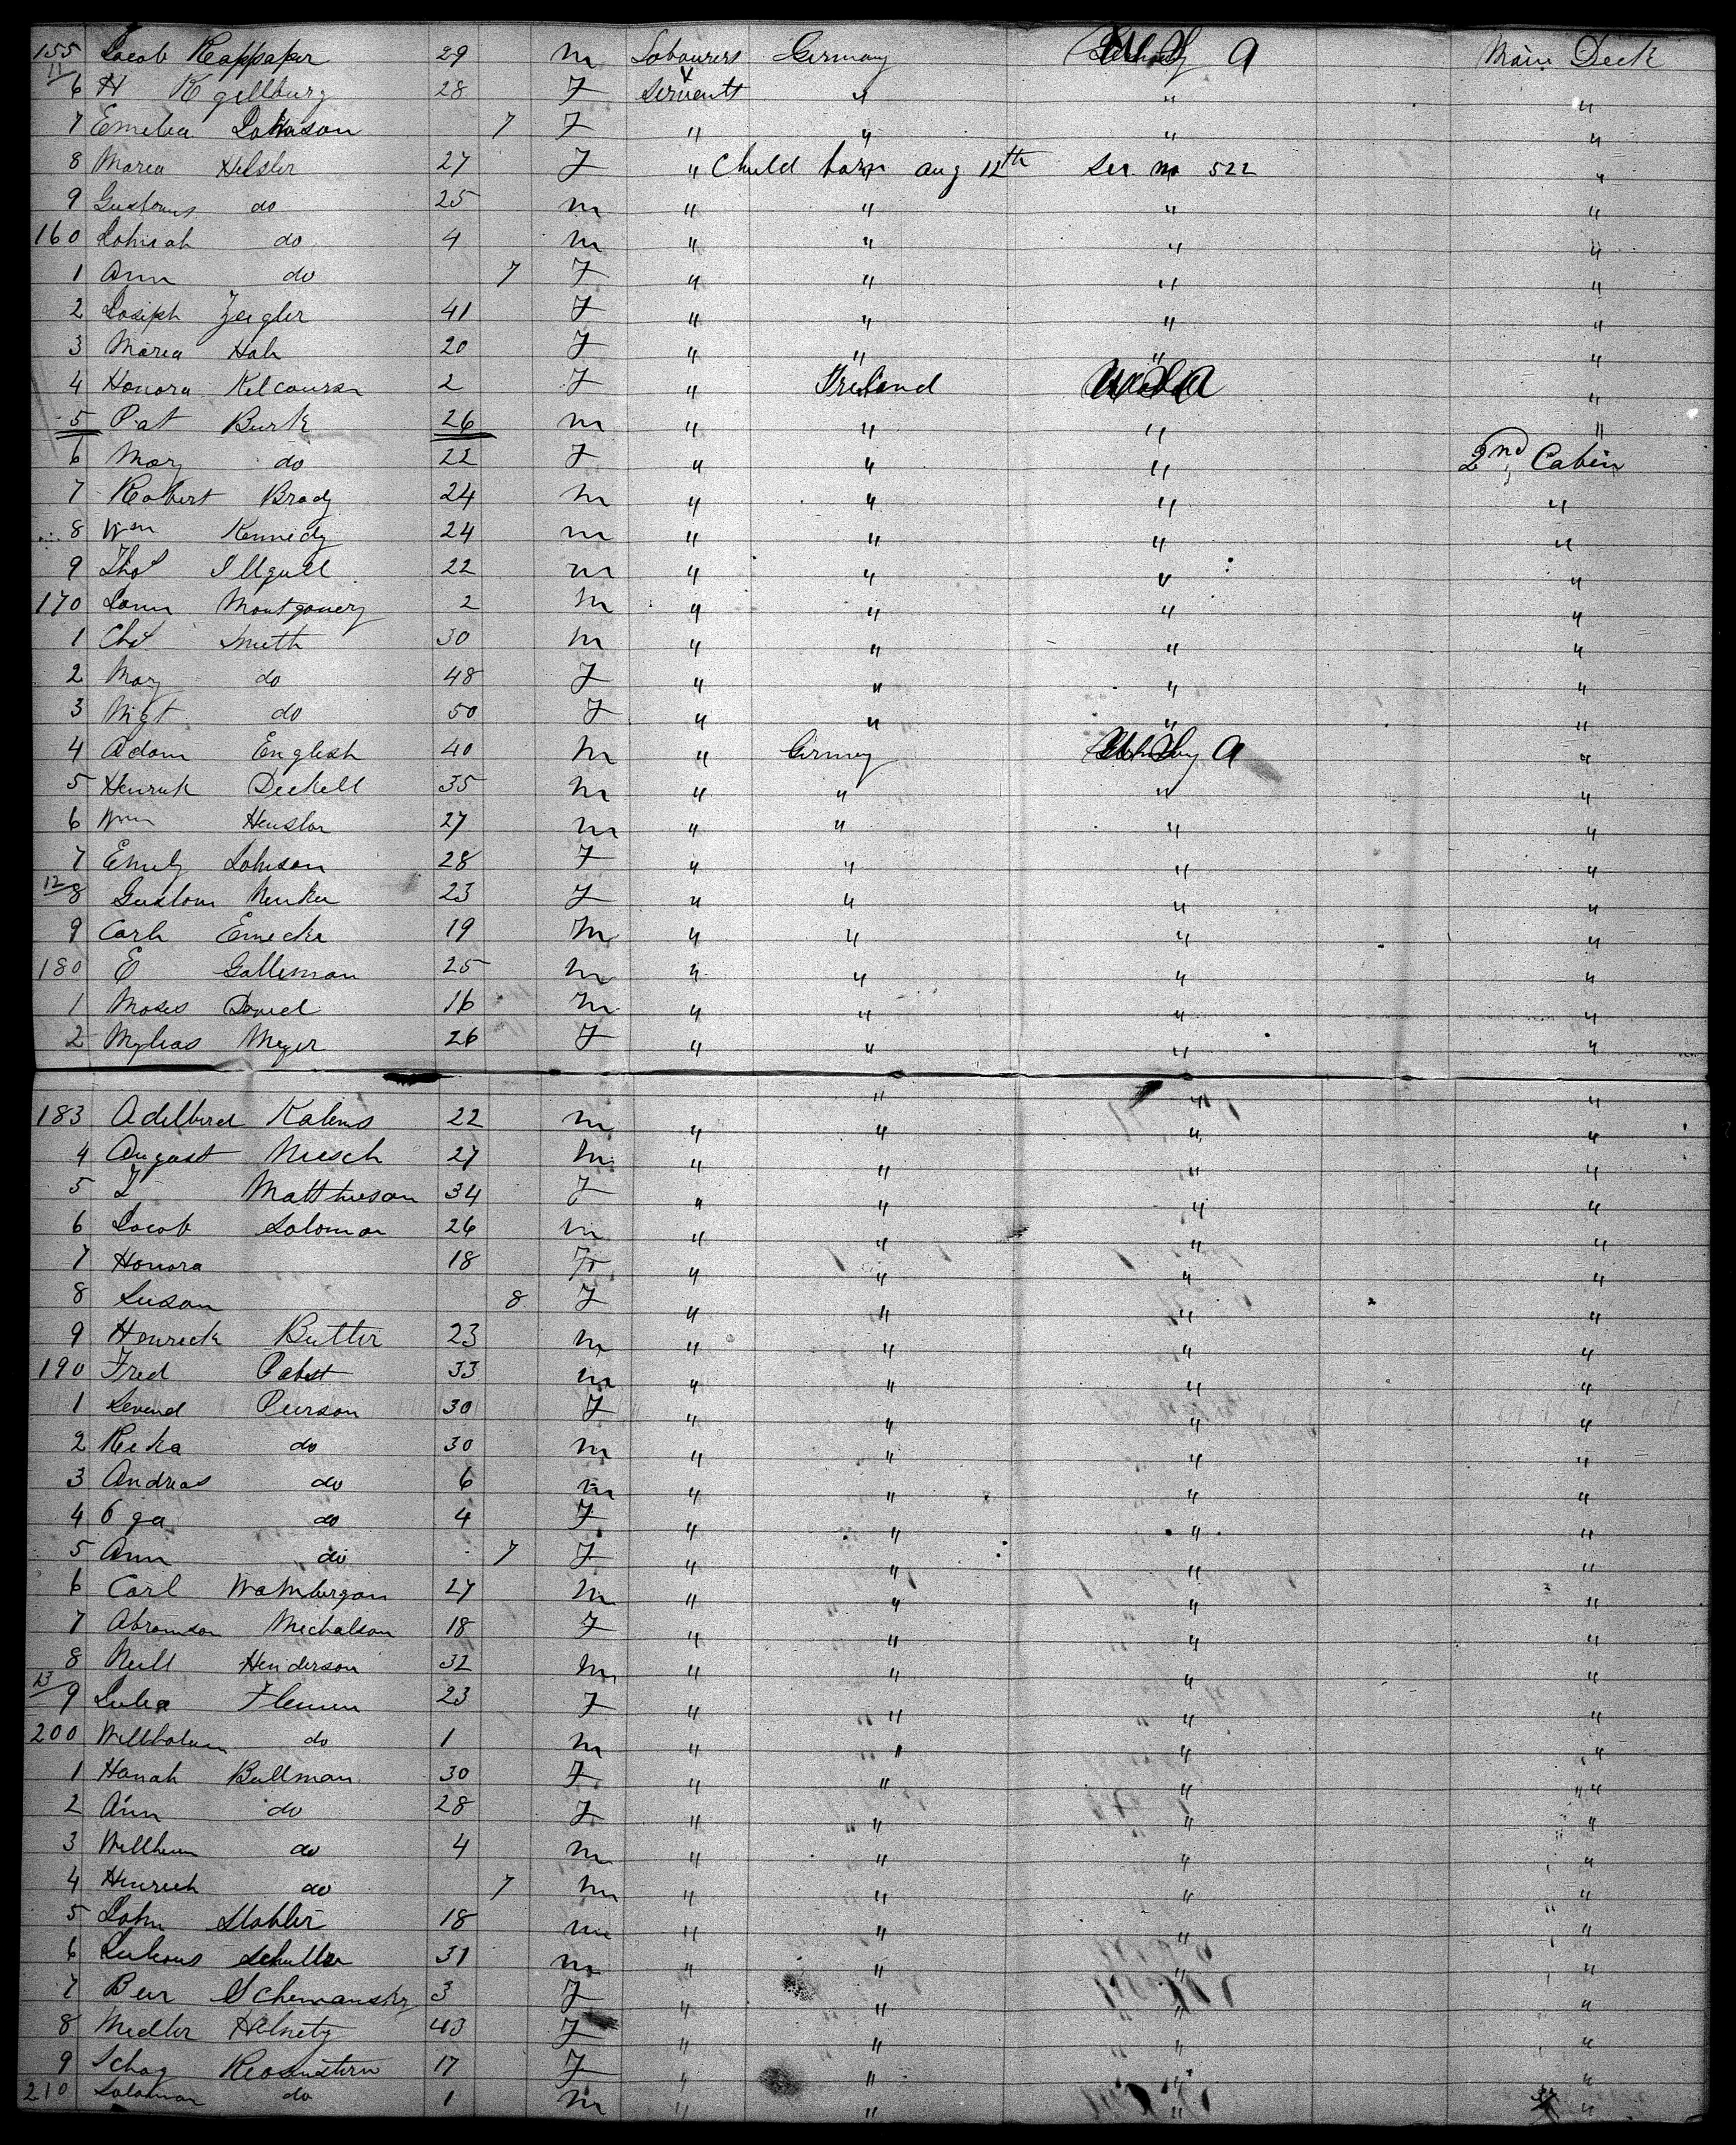 155 Jacob Kappaper 29 m Labourers Germany A Main Deck
11
6 H Kgellburg 28 F Servants " " "
7 Emelia Johnson 7 F " " " "
8 Maria Hessler 27 F " Child born aug 12th See no 522 "
9 Gustavus do 25 m " " " "
160 Johnah do 4 m " " " "
1 Ann do 7 F " " " "
2 Joseph Zeigler 41 F " " " "
3 Maria Hah 20 F " " " "
4 Honora Kilcourse 2 F " Ireland "
5 Pat Burk 26 m " " " "
6 Mary do 22 F " " " 2nd Cabin
7 Robert Brady 24 m " " " "
8 Wm Kennedy 24 m " " " "
9 Thos 22 m " " " "
170 Montgomery 2 m " " " "
1 Chs Smith 30 m " " " "
2 Mary do 48 F " " " "
3 Mgt do 50 F " " " "
4 Adam English 40 m " Germy A "
5 Henrick Deckell 35 m " " " "
6 Wm Henslar 27 m " " " "
7 Emily Johnson 28 F " " " "
12
8 Gustom 23 F " " " "
9 Carh Emecke 19 m " " " "
180 E Galleman 25 m " " " "
1 Moses David 16 m " " " "
2 Mylias Meyer 26 F " " " "
" " "
183 Adelbird Kalens 22 m " " " "
4 August Miesch 27 m " " " "
5 Matthieson 34 F " " " "
6 Jacob Saloman 26 m " " " "
7 Honora 18 F " " " "
8 Susan 8 F " " " "
9 Henreck Butter 23 m " " " "
190 Fred Pabst 33 m " " " "
1 Sevend Peerson 30 F " " " "
2 Reka do 30 m " " " "
3 Andreas do 6 m " " " "
4 Oga do 4 F " " " "
5 Ann do 7 F " " " "
6 Carl Wamburgan 27 m " " " "
7 Abramson Michalson 18 F " " " "
8 Neill Henderson 32 m " " " "
13
9 Julia Flemm 23 F " " " "
200 Willhalam do 1 m " " " "
1 Hanah Bullman 30 F " " " "
2 Ann do 28 F " " " "
3 Willhem do 4 m " " " "
4 Henrich do 7 m " " " "
5 John Stabler 18 m " " " "
6 Schuller 31 m " " " "
7 Ber Schemansky 3 F " " " "
8 Miedler Helnety 43 F " " " "
9 Schag Reosenstern 17 F " " " "
210 Saloman do 1 m " " " "